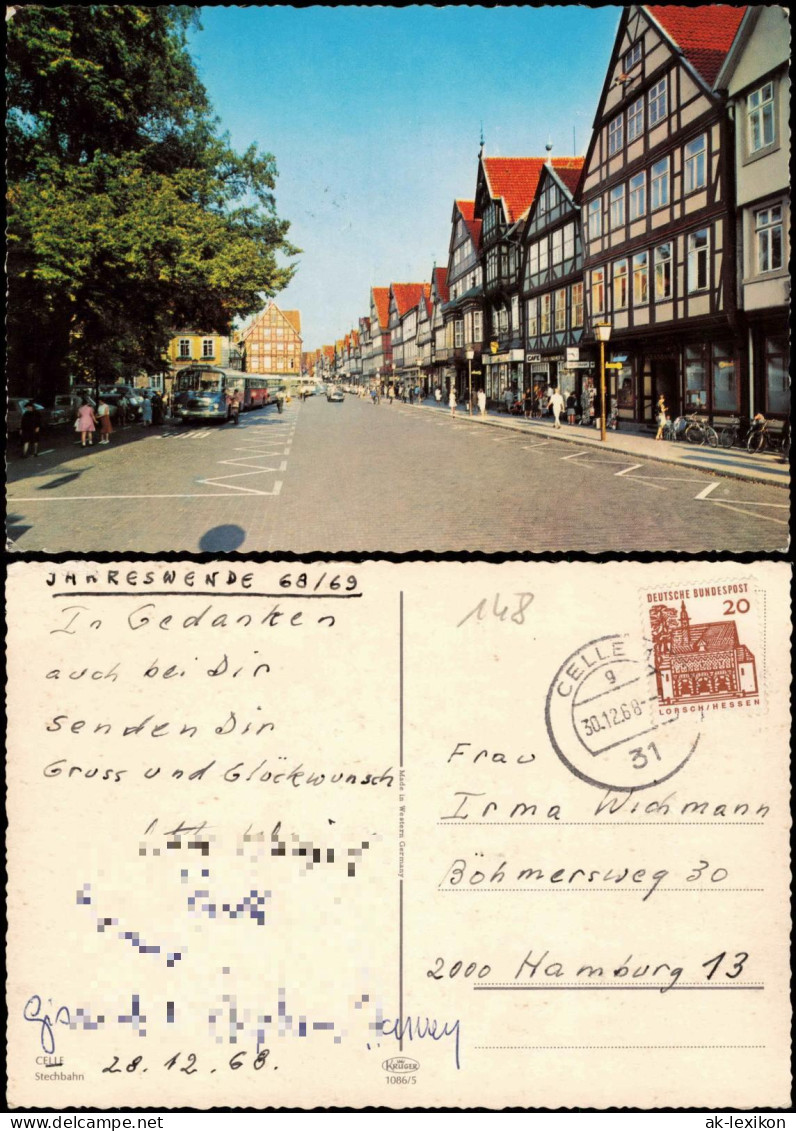 CAFE
JAHRESWENDE 68/69
In Gedanken
auch bei Dir
senden Dir
Gruss und Glöckwunsch
28.12.68.
CELLE
Stechbahn
Made in Western Germany
KRÜGER
1086/5
148
DEUTSCHE BUNDESPOST
20
LORSCH/HESSEN
CELLE
g
30.12.68
31
Frau
Irma Wichmann
Böhmersweg 30
2000 Hamburg 13
ak-lexikon